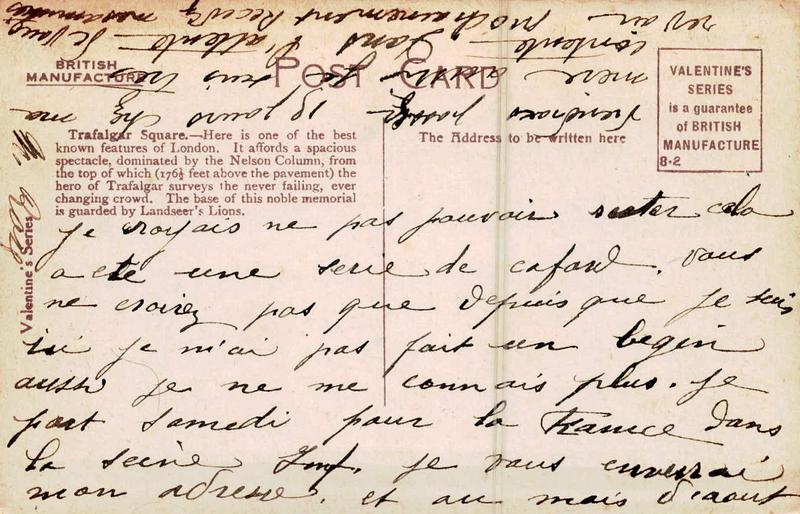 BRITISH
MANUFACTURE
POST CARD
VALENTINE'S
SERIES
is a guarantee
of BRITISH
MANUFACTURE
8·2
Trafalgar Square.—Here is one of the best
known features of London. It affords a spacious
spectacle, dominated by the Nelson Column, from
the top of which (176½ feet above the pavement) the
hero of Trafalgar surveys the never failing, ever
changing crowd. The base of this noble memorial
is guarded by Landseer's Lions.
The Address to be written here
Valentine's Series
je croyais ne pas pouvoir rester cela
a ete une serie de cafard. vous
ne croirez pas que depuis que je suis
ici je n'ai pas fait un begin
aussi je ne me connais plus. je
part samedi pour la France dans
la seine Inf. je vous enverrai
mon adresse. et au mois d'aout
viendrais passer 19 jours chez ma
mere aussi je suis tres
contente Dans l'attente de vous
revoir prochainement Recevez